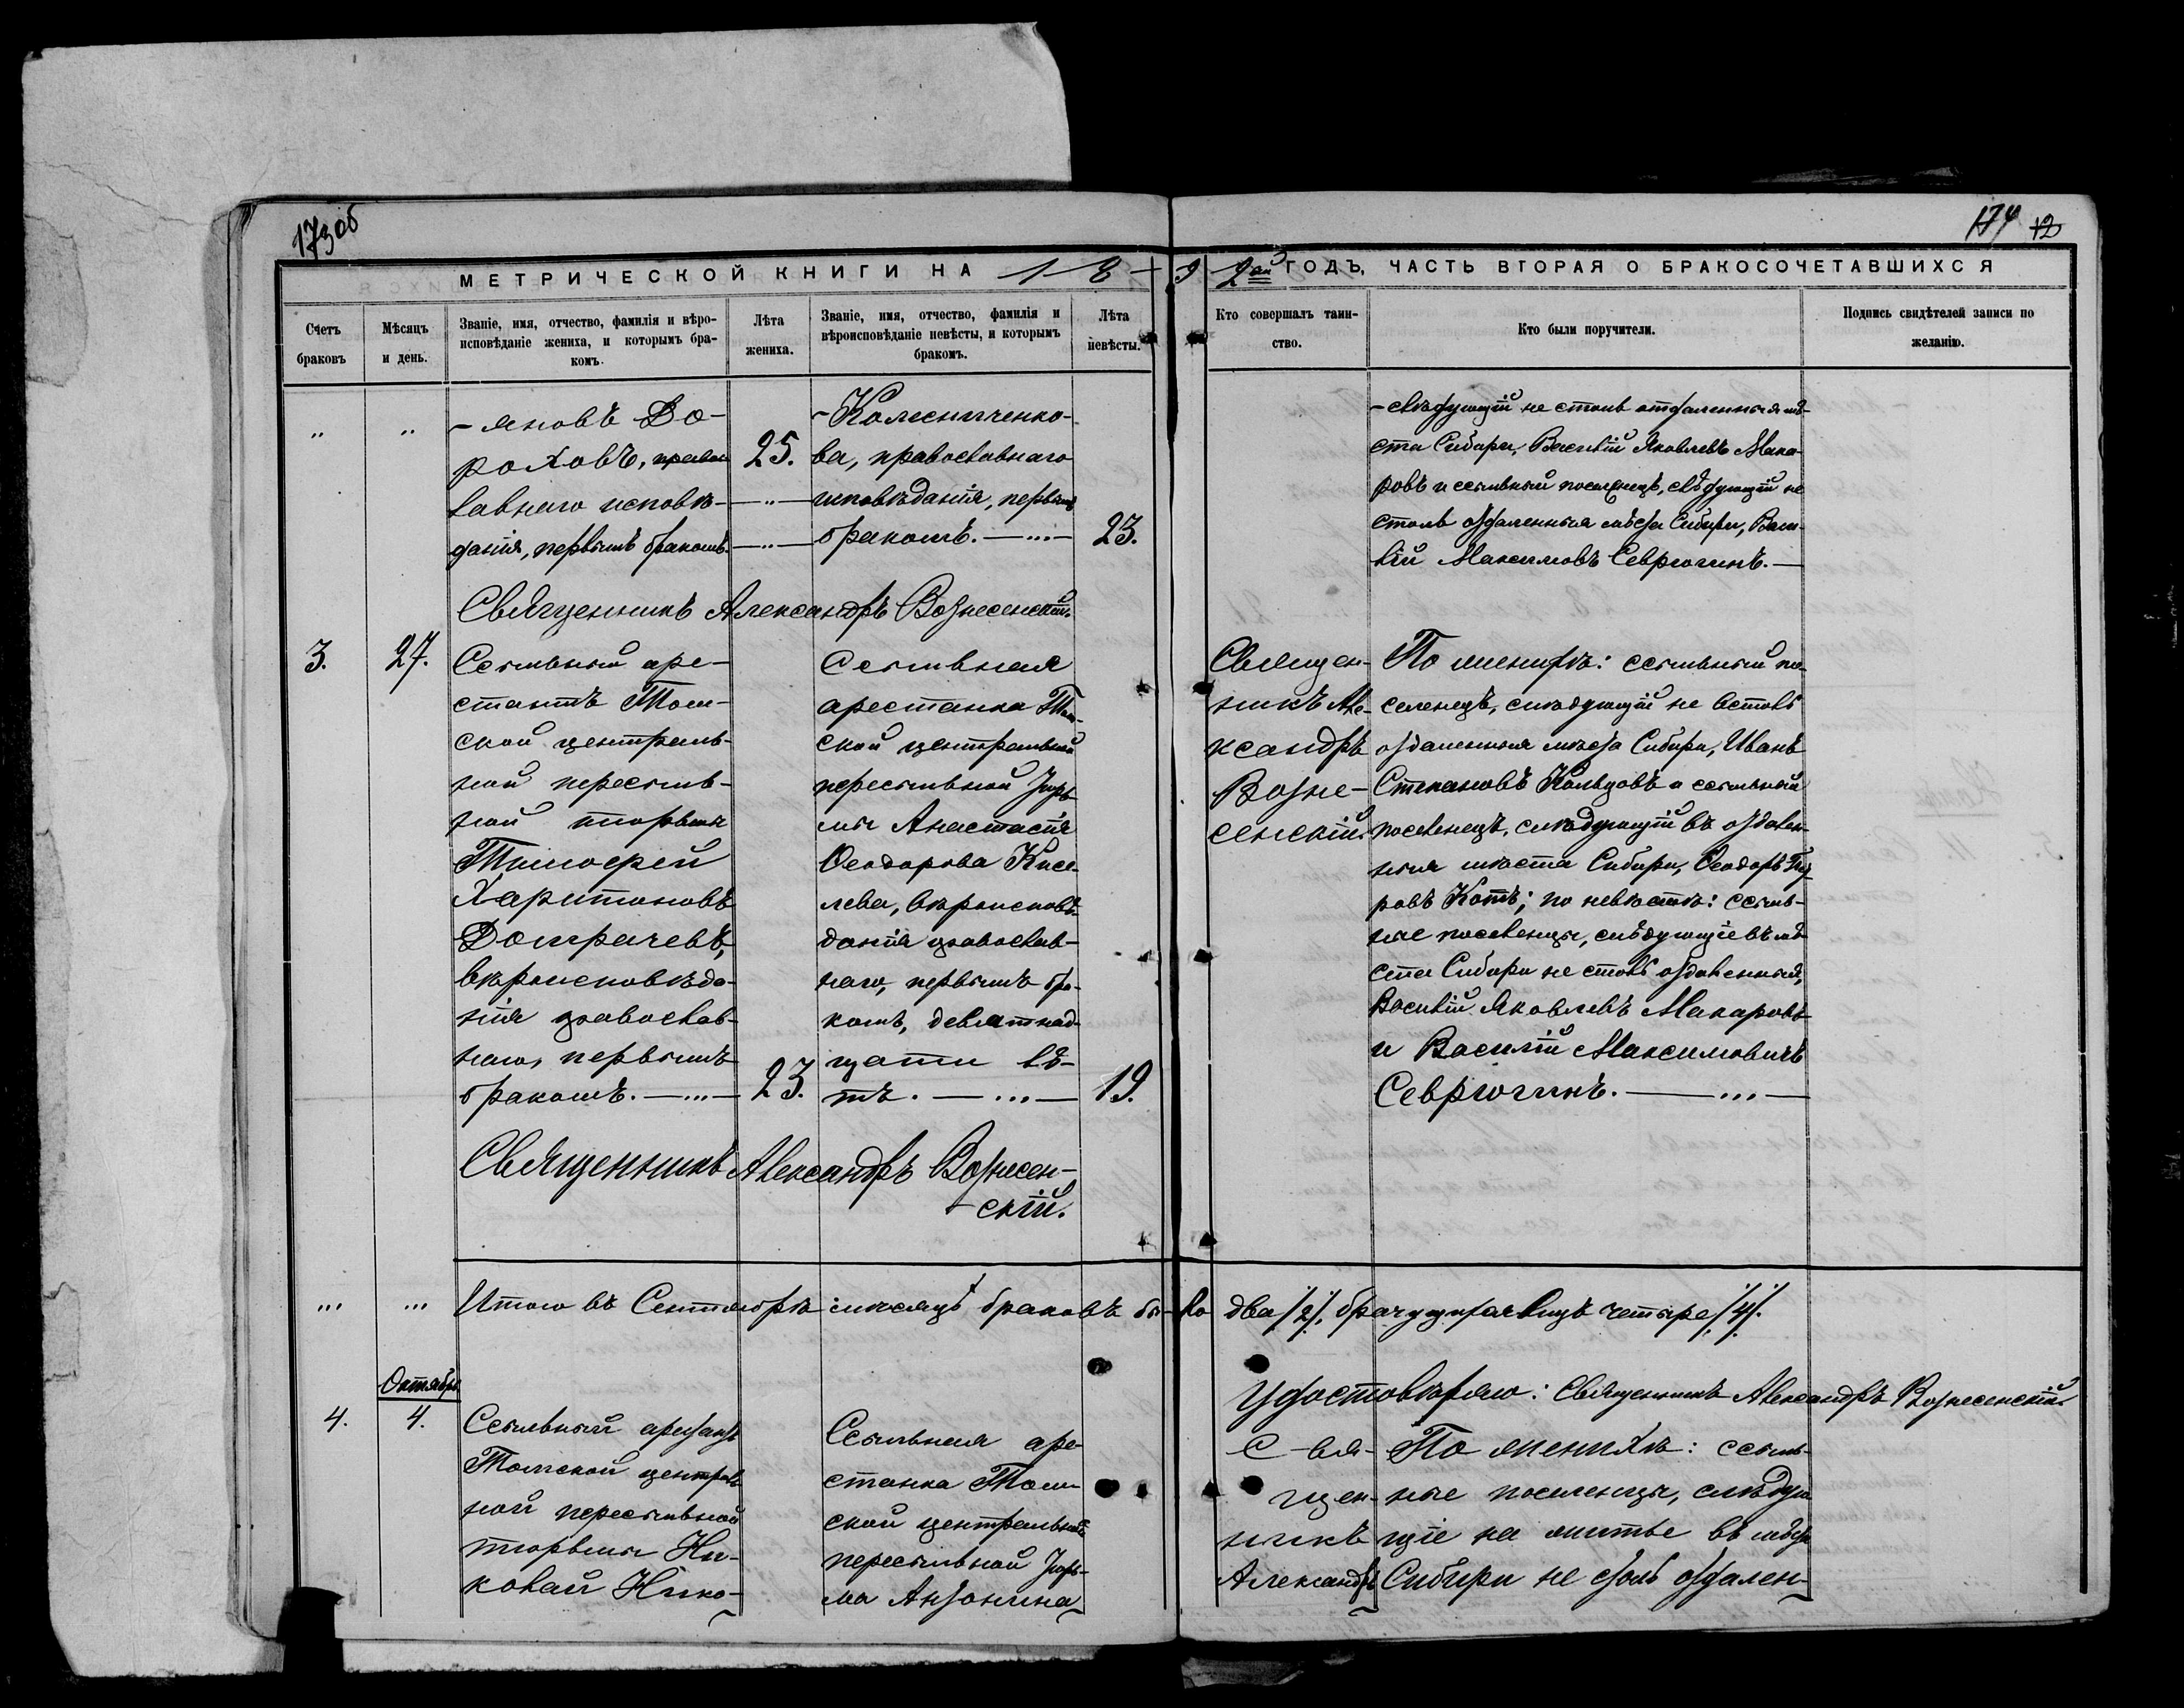 173об
174 12
МЕТРИЧЕСКОЙ КНИГИ НА 1892ой ГОДЪ, ЧАСТЬ ВТОРАЯ О БРАКОСОЧЕТАВШИХСЯ
Счетъ браковъ
Мѣсяцъ и день.
Званіе, имя, отчество, фамилія и вѣро-
исповѣданіе жениха, и которымъ бра-
комъ.
Лѣта
жениха.
Званіе, имя, отчество, фамилія и
вѣроисповѣданіе невѣсты, и которымъ
бракомъ.
Лѣта
невѣсты.
Кто совершалъ таин-
ство.
Кто были поручители.
Подпись свидѣтелей записи по
желанію.
-яновъ До-
роховъ, правос
лавнаго исповѣ-
данія, первымъ бракомъ.
25.
-Колесниченко-
ва, православнаго
исповѣданія, первымъ
бракомъ.
23.
-слѣдующій не столь отдаленныя мѣ-
ста Сибири, Василій Яковлевъ Мака-
ровъ и ссыльный поселенецъ, слѣдующій не
столь отдаленныя мѣста Сибири, Васи-
лій Максимовъ Севрюгинъ.
Священникъ Александръ Вознесенскій.
3.
27.
Ссыльный аре-
стантъ Том-
ской централь-
ной пересыль-
ной тюрьмы
Тимофей
Харитоновъ
Домрачевъ,
вѣроисповѣда-
нія православ-
наго, первымъ
бракомъ.
23.
Ссыльная
арестанка Том-
ской центральной
пересыльной тюрь
мы Анастасія
Ѳеодорова Кисе-
лева, вѣроисповѣ-
данія православ-
наго, первымъ бра-
комъ, девятнад-
цати лѣ-
тъ.
19.
Священ-
никъ Але-
ксандръ
Возне-
сенскій.
По женихѣ: ссыльный по-
селенецъ, слѣдующій не встоль
отдаленныя мѣста Сибири, Иванъ
Степановъ Кольцовъ и ссыльный
поселенецъ, слѣдующій въ отдален-
ныя мѣста Сибири, Ѳеодоръ
ровъ Котъ; по невѣстѣ: ссыль-
ные поселенцы, слѣдующіе въ мѣ-
ста Сибири не столь отдаленныя,
Василій Яковлевъ Макаровъ
и Василій Максимовичъ
Севрюгинъ.
Священникъ Александръ Вознесен-
скій.
Итого въ Сентябрѣ мѣсяцѣ браковъ бы-ло два /2/, брачущихся лицъ четыре /4/.
Удостовѣряю: Священникъ Александръ Вознесенскій
Октябрь
4.
4.
Ссыльный арестантъ
Томской централь
ной пересыльной
тюрьмы Ни-
колай Нико-
Ссыльная аре-
станка Том-
ской центральной
пересыльной тюрь-
мы Антонина
Свя-
щен-
никъ
Александръ
По женихѣ: ссыль-
ные поселенцы, слѣдую
щіе на житье въ мѣста
Сибири не столь отдален-